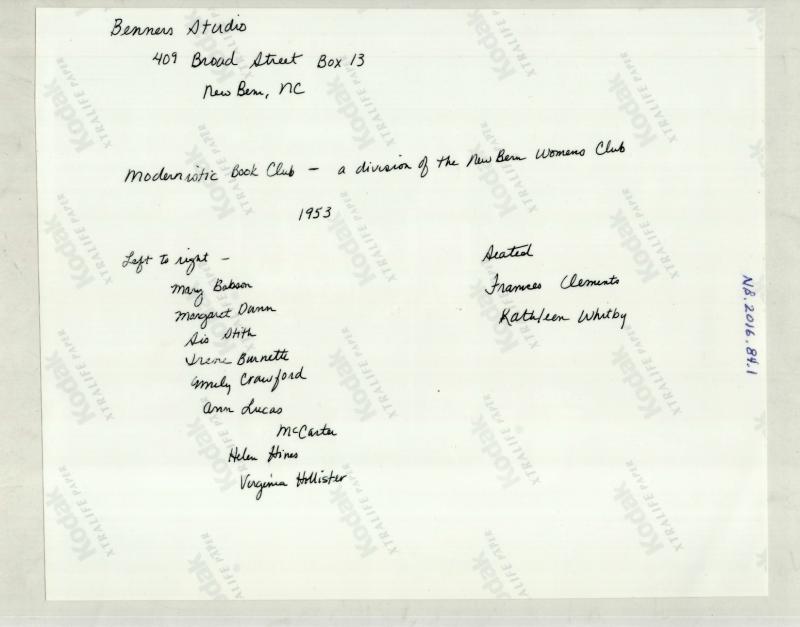 Benners Studio
409 Broad Street Box 13
New Bern, NC
Modernistic Book Club — a division of the New Bern Womens Club
1953
Left to right —
Mary Babson
Margaret Dunn
Sis Stith
Irene Burnette
Emily Crawford
Ann Lucas
McCarter
Helen Hines
Virginia Hollister
Seated
Frances Clements
Kathleen Whitby
NB.2016.84.1
Kodak
XTRALIFE PAPER